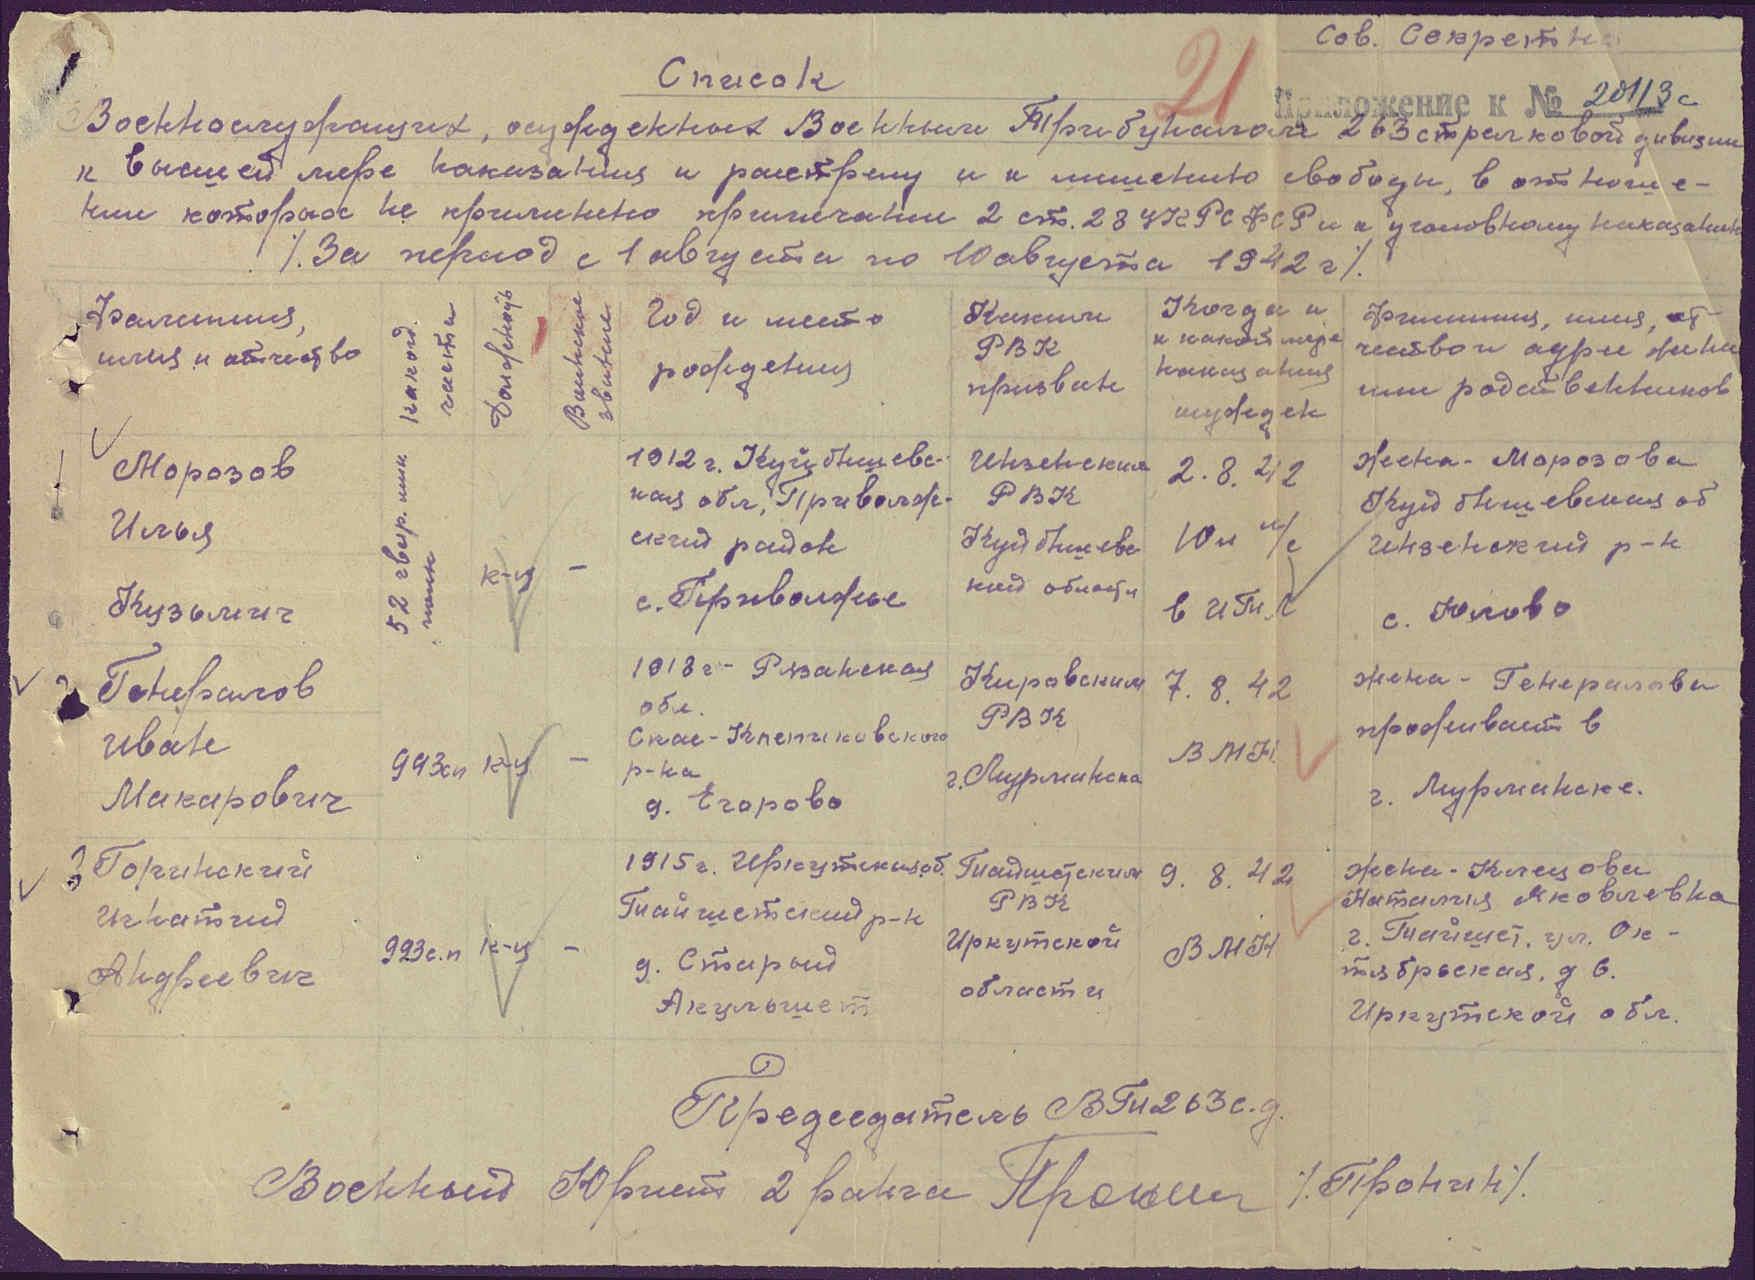 Сов. Секретно
21
Список
Приложение к № 2011/3с
Военнослужащих, осужденных Военным Трибуналом 263 стрелковой дивизии
к высшей мере наказания и расстрелу и к лишению свободы, в отноше-
нии которых не применено примечание 2 ст. 28 УК РСФСР и к уголовному наказанию
/. За период с 1 августа по 10 августа 1942 г /.
Фамилия, имя и отчество
Какой части
Должность
Воинское звание
Год и место рождения
Каким РВК призван
Когда и к какой мере наказания осужден
Фамилия, имя, от-
чество и адрес жены
или родственников
1
Морозов
Илья
Кузьмич
52 полк
к-ц
-
1912 г. Куйбышевс-
кая обл, Приволж-
ский район
с. Приволжье
Инзенским
РВК
Куйбышевс
кой области
2.8.42
10 л л/с
в ИТЛ
Жена - Морозова
Куйбышевская об
Инзенский р-н
с. Юлово
2
Генералов
Иван
Макарович
993сп
к-ц
-
1918 г - Рязанская
обл.
Спас-Клепиковского
р-на
д. Егорово
Кировским
РВК
г. Мурманска
7.8.42
ВМН.
жена - Генералова
проживает в
г. Мурманске.
3
Горинский
Игнатий
Андреевич
993с.п
к-ц
-
1915 г. Иркутская об.
Тайшетский р-н
д. Старый
Акульшет
Тайшетским
РВК
Иркутской
области
9.8.42
ВМН
жена - Клецова
Наталия Яковлевна
г. Тайшет, ул. Ок-
тябрьская, д 6.
Иркутской обл.
Председатель ВТ 263 с.д.
Военный Юрист 2 ранга Пронин /. Пронин /.